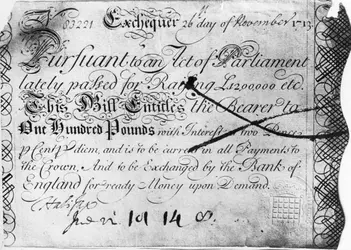 Exchequer 26th day of November 1713
Pursuant to an Act of Parliament
lately passed for Raising £1200000 etc.
This Bill Entitles the Bearer to
One Hundred Pounds with Interest at two Pence
p Cent p diem, and is to be current in all Payments to
the Crown, And to be Exchanged by the Bank of
England for ready Money upon Demand.